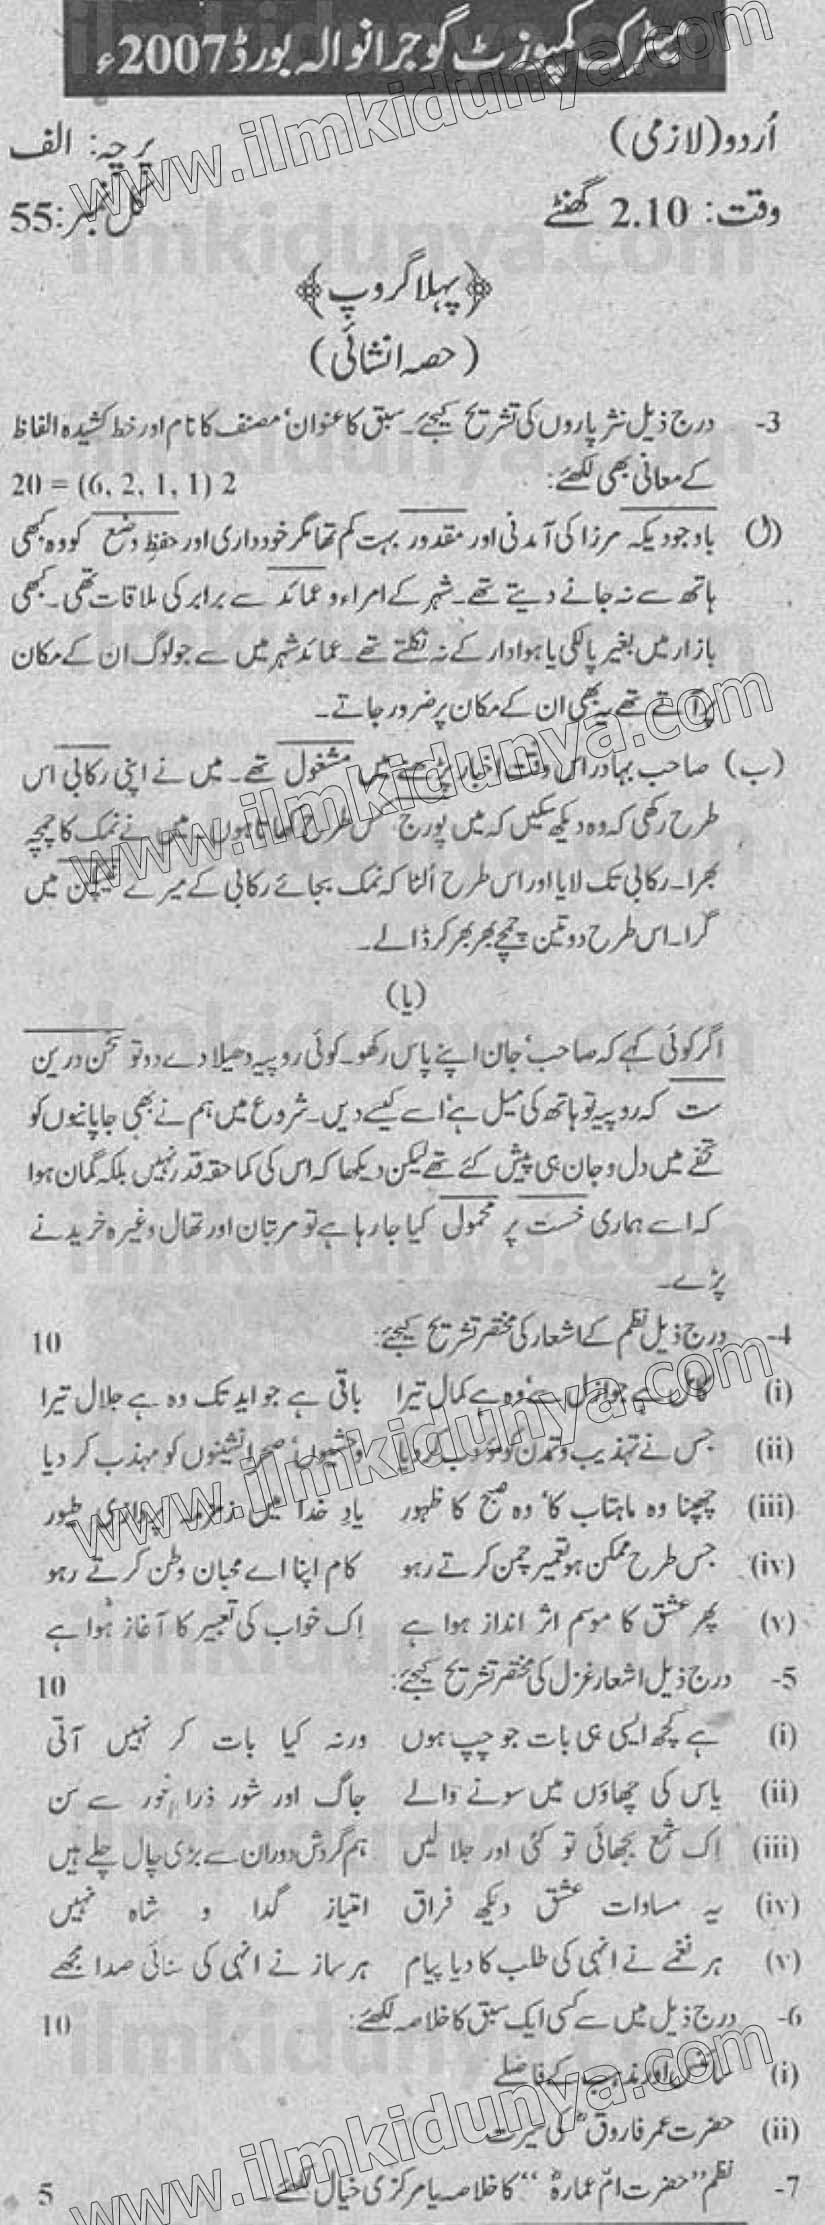 میٹرک کمپوزٹ گوجرانوالہ بورڈ 2007ء
اُردو (لازمی) پرچہ: الف
وقت: 2.10 گھنٹے کل نمبر: 55
﴿پہلا گروپ﴾
(حصہ انشائی)
3- درج ذیل نثر پاروں کی تشریح کیجئے۔ سبق کا عنوان، مصنف کا نام اور خط کشیدہ الفاظ
کے معانی بھی لکھئے: 20 = (6, 2, 1, 1) 2
(ل) باوجودیکہ مرزا کی آمدنی اور مقدور بہت کم تھا مگر خودداری اور حفظِ وضع کو وہ کبھی
ہاتھ سے نہ جانے دیتے تھے۔ شہر کے امراء و عمائد سے برابر کی ملاقات تھی۔ کبھی
بازار میں بغیر پالکی یا ہوادار کے نہ نکلتے تھے۔ عمائد شہر میں سے جو لوگ ان کے مکان
پر آتے تھے یہ بھی ان کے مکان پر ضرور جاتے۔
(ب) صاحب بہادر اس وقت اخبار پڑھنے میں مشغول تھے۔ میں نے اپنی رکابی اس
طرح رکھی کہ وہ دیکھ سکیں کہ میں پورج کس طرح کھاتا ہوں۔ میں نے نمک کا چمچہ
بھرا۔ رکابی تک لایا اور اس طرح اُلٹا کہ نمک بجائے رکابی کے میرے نیپکن میں
گرا۔ اس طرح دو تین چمچے بھر بھر کر ڈالے۔
(یا)
اگر کوئی کہے کہ صاحب، جان اپنے پاس رکھو۔ کوئی روپیہ دھیلا دے دو تو سخن دریں
ست کہ روپیہ تو ہاتھ کی میل ہے، اسے کیسے دیں۔ شروع میں ہم نے بھی جاپانیوں کو
تحفے میں دل و جان ہی پیش کئے تھے لیکن دیکھا کہ اس کی کما حقہ قدر نہیں بلکہ گمان ہوا
کہ اسے ہماری خست پر محمول کیا جا رہا ہے تو مرتبان اور تھال وغیرہ خریدنے
پڑے۔
4- درج ذیل نظم کے اشعار کی مختصر تشریح کیجئے: 10
(i) کامل ہے جو ازل سے، وہ ہے کمال تیرا باقی ہے جو ابد تک وہ ہے جلال تیرا
(ii) جس نے تہذیب و تمدن کو کر دیا وحشیوں، صحرا نشینوں کو مہذب کر دیا
(iii) چھپنا وہ ماہتاب کا، وہ صبح کا ظہور یادِ خدا میں زمزمہ پردازی طیور
(iv) جس طرح ممکن ہو تعمیر چمن کرتے رہو کام اپنا اے محبان وطن کرتے رہو
(v) پھر عشق کا موسم اثر انداز ہوا ہے اِک خواب کی تعبیر کا آغاز ہُوا ہے
5- درج ذیل اشعار غزل کی مختصر تشریح کیجئے: 10
(i) ہے کچھ ایسی ہی بات جو چپ ہوں ورنہ کیا بات کر نہیں آتی
(ii) یاس کی چھاؤں میں سونے والے جاگ اور شور ذرا غور سے سن
(iii) اِک شمع بجھائی تو کئی اور جلا لیں ہم گردش دوراں سے بڑی چال چلے ہیں
(iv) یہ مساوات عشق دیکھ فراق امتیاز گدا و شاہ نہیں
(v) ہر نغمے نے انہی کی طلب کا دیا پیام ہر ساز نے انہی کی سنائی صدا مجھے
6- درج ذیل میں سے کسی ایک سبق کا خلاصہ لکھئے: 10
(i) سائنس اور مذہب کے فاصلے
(ii) حضرت عمر فاروقؓ کی سیرت
7- نظم "حضرت امّ عمارہؓ" کا خلاصہ یا مرکزی خیال لکھئے۔ 5
www.ilmkidunya.com